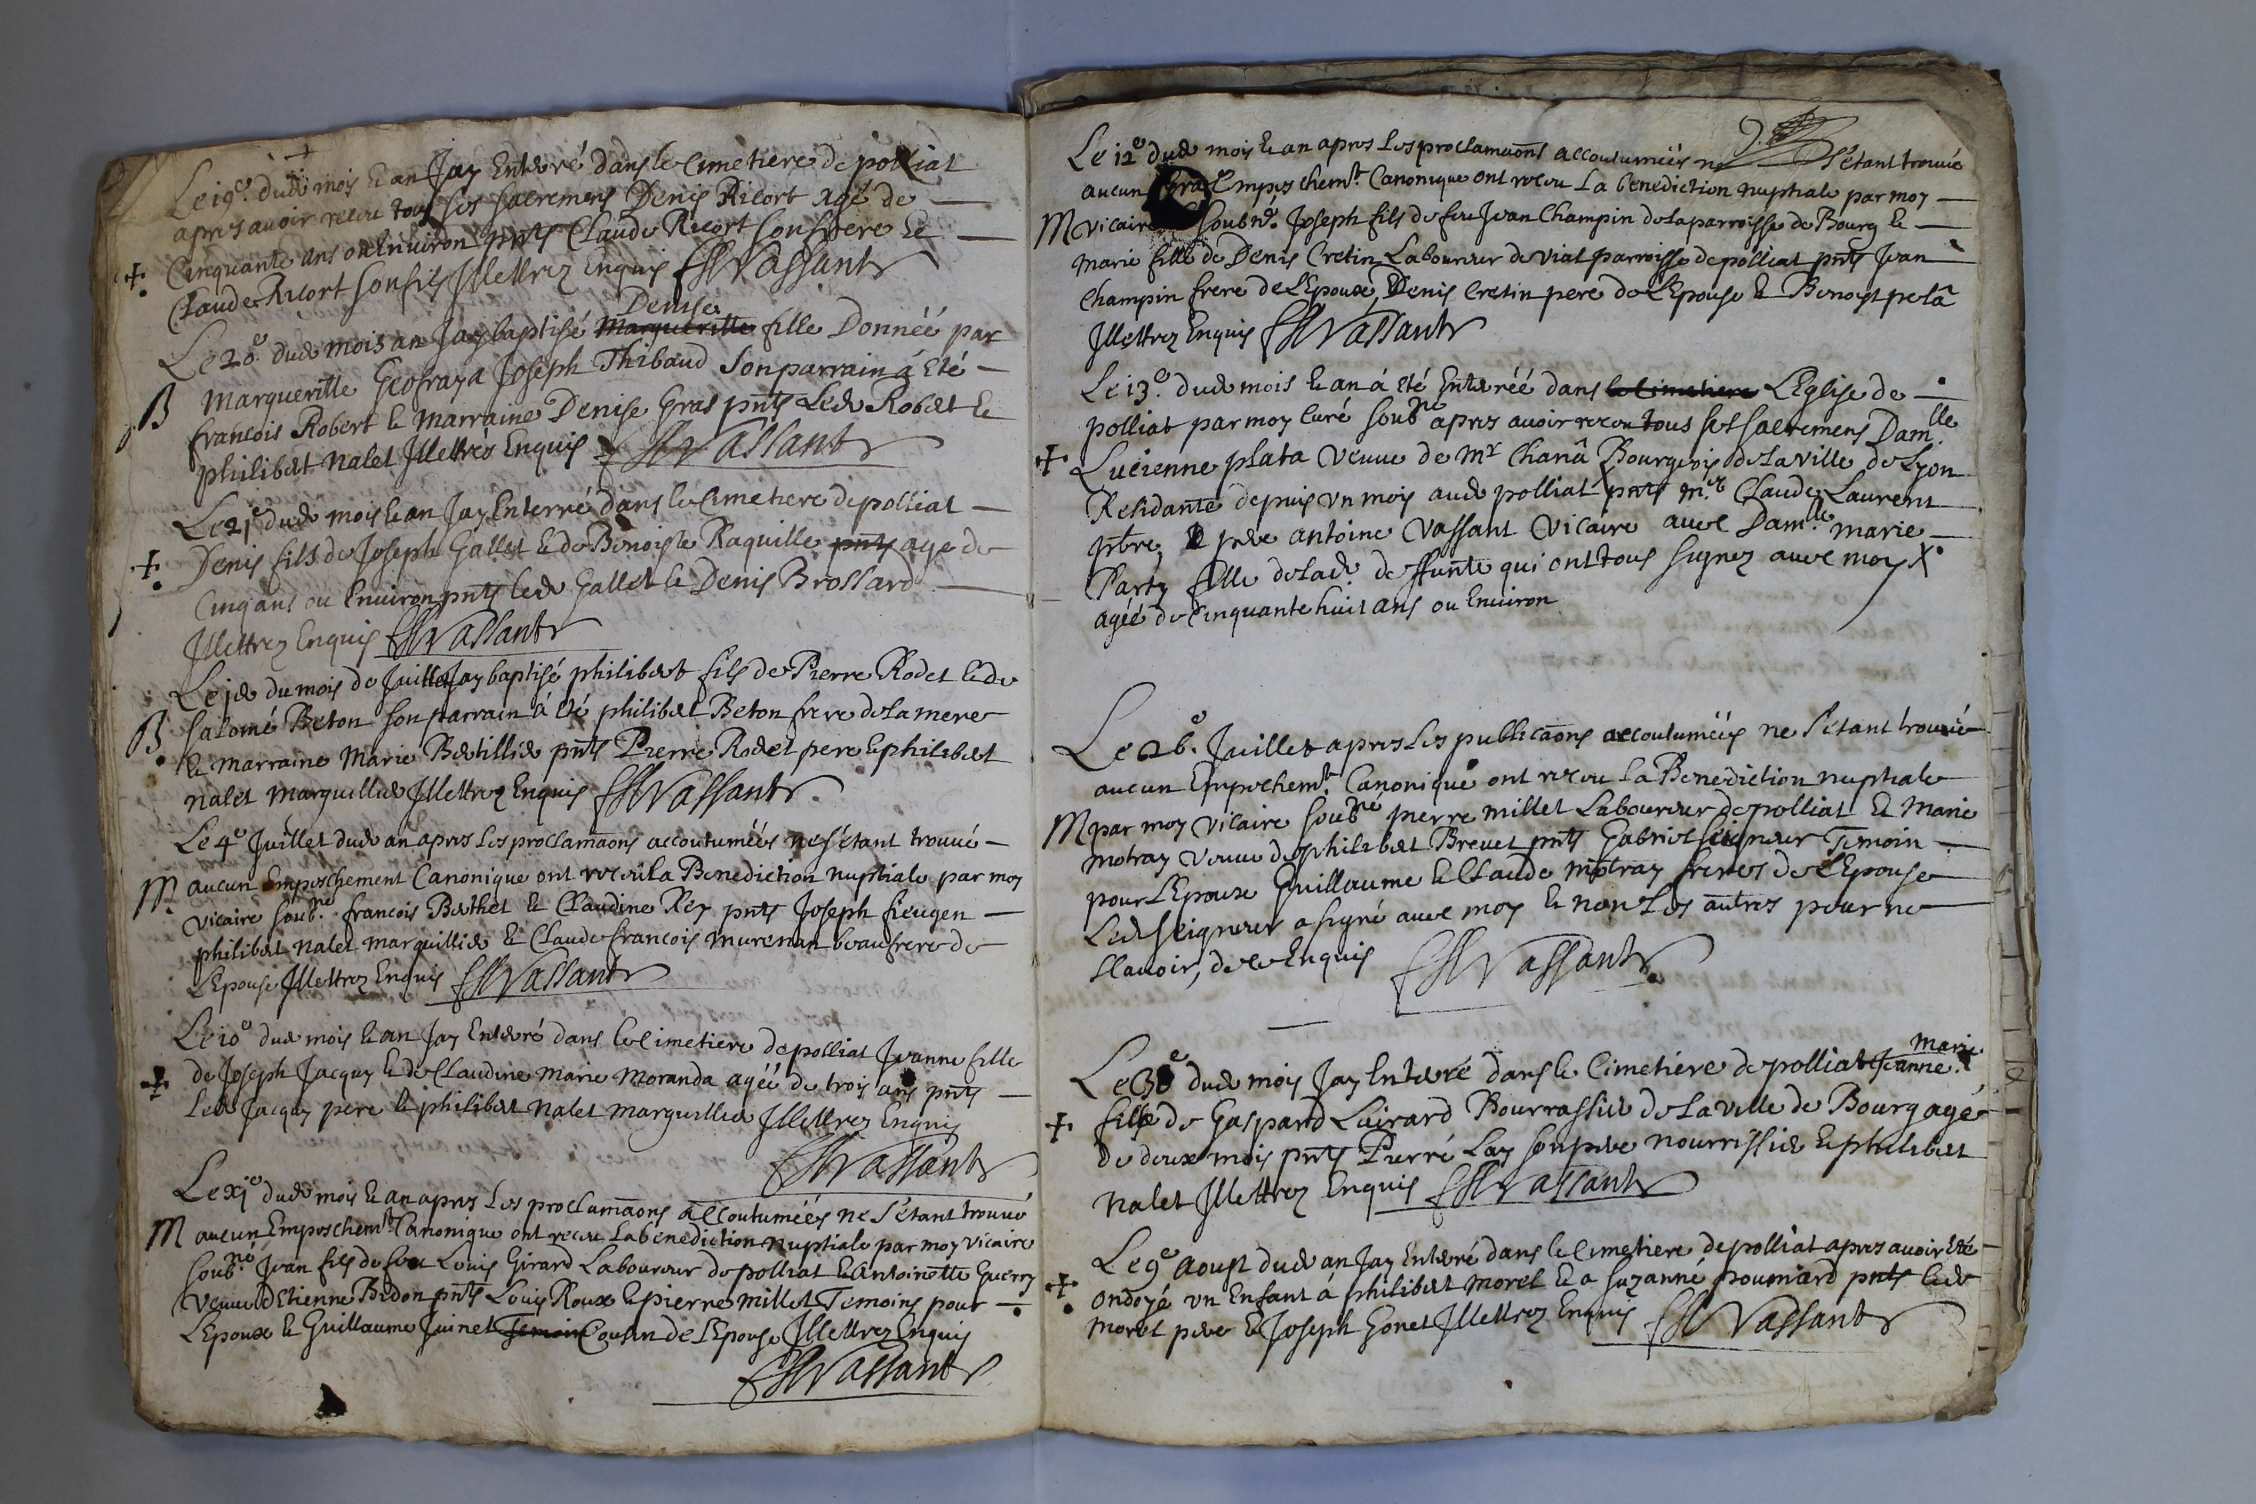 Le 19e. dud mois & an Jay Enterré dans le Cimetiere de polliat
apres avoir receu tous ses sacremens Denis Ricort agé de
Cinquante ans ou Environ pnts Claude Ricort son frere &
Claude Ricort son fils Illettrez Enquis Vassant
Denise
Le 20e. dud mois an Jay baptisé Margueritte fille Donnéé par
Margueritte Geofraya Joseph Thibaud Son parrain á Eté
B francois Robert & Marraine Denise Gras pnts Led Robert &
philibert nalet Illettrés Enquis Vassant
Le 21e dud mois & an Jay Enterré dans le Cimetiere de polliat
Denis fils de Joseph Gallet & de Benoiste Raquille pnts age de
Cinq ans ou Environ pnts led Gallet & Denis Brossard
Illettrez Enquis Vassant
Le j du mois de Juillet Jay baptisé philibert fils de Pierre Rodet & de
B Salomé Beton son parrain á eté philibert Beton frere de la mere
& marraine Marie pnts Pierre Rodet pere & philibert
nalet marguillier Illettrez Enquis Vassant
Le 4e Juillet dud an apres les proclamaons accoutuméés ne s'étant trouvé
M aucun Emposchement Canonique ont receu la Benediction nuptiale par moy
vicaire soubné. francois Berthet & Claudine Rey pnts Joseph fieugen
philibert nalet marguillier & Claude francois murenan beaufrere de
L'Epouse Illettrez Enquis Vassant
Le 10e dud mois & an Jay Enterré dans le Cimetiere de polliat Jeanne fille
de Joseph Jacquy & de Claudine Marie Moranda agéé de trois ans pnts
Led Jacquy pere & philibert nalet marguillier Illettrez Enquis
Vassant
Le xje dud mois & an apres les proclamaons accoutuméés ne s'étant trouvé
M aucun Emposchemt. Canonique ont receu la bénediction nuptiale par moy vicaire
soubné Jean fils de feu Louis Girard Laboureur de polliat & Antoinette Guerry
veuve d'Etienne Bidon pnts Louis Roux & pierre millet Temoins pour
L'Epoux & Guillaume Juinet Temoin Cousin de L'Epouse Illettrez Enquis
Vassant
Le 12e dud mois & an apres les proclamaons accoutuméés ne s'étant trouvé
aucun Emposchemt. Canonique ont receu La benediction nuptiale par moy
M vicaire soubné. Joseph fils de feu Jean Champin de la parroisse de Bourg &
marie fille de Denis Cretin Laboureur de viat parroisse de polliat pnts Jean
Champin frere de L'Epoux, Denis Cretin pere de L'Epouse & Benoist pelâ
Illettrez Enquis Vassant
Le 13e. dud mois & an á eté Enterréé dans le Cimetiere L'Eglise de
polliat par moy Curé soubné apres avoir receu tous ses sacremens Damlle.
Lucienne plata veuve de Mr Chanâ Bourgeois de la ville de Lyon
Residante depuis un mois aud polliat pnts mre Claude Laurent
pbtre, & antoine Vassant vicaire avec Damlle marie
Party fille de lad. deffunte qui ont tous signez avec moy X
agéé de Cinquante huit ans ou Environ
Le 26e. Juillet apres les publicaons accoutuméés ne s'étant trouvé
aucun Empechemt. Canonique ont receu la Benediction nuptiale
M par moy vicaire soubné pierre millet Laboureur de polliat & Marie
motray veuve de philibert Brevet pnts Gabriel seigneur Temoin
pour L'Epoux Guillaume & Claude motray freres de L'Epouse
Led seigneur a signé avec moy & non les autres pour ne
sçavoir, de ce Enquis Vassant
Marie
Le 30e dud mois Jay Enterré dans le Cimetiere de polliat Jeanne X
fille de Gaspard Luirard Bourrassier de la ville de Bourg agé
de deux mois pnts Pierre Lay son pere nourrissier & philibert
nalet Illettrez Enquis Vassant
Le 9e Aoust dud an Jay Enterré dans le Cimetiere de polliat apres avoir eté
ondoyé un Enfant á philibert morel & a Suzanne poumiard pnts led
morel pere & Joseph Gonet Illettrez Enquis Vassant